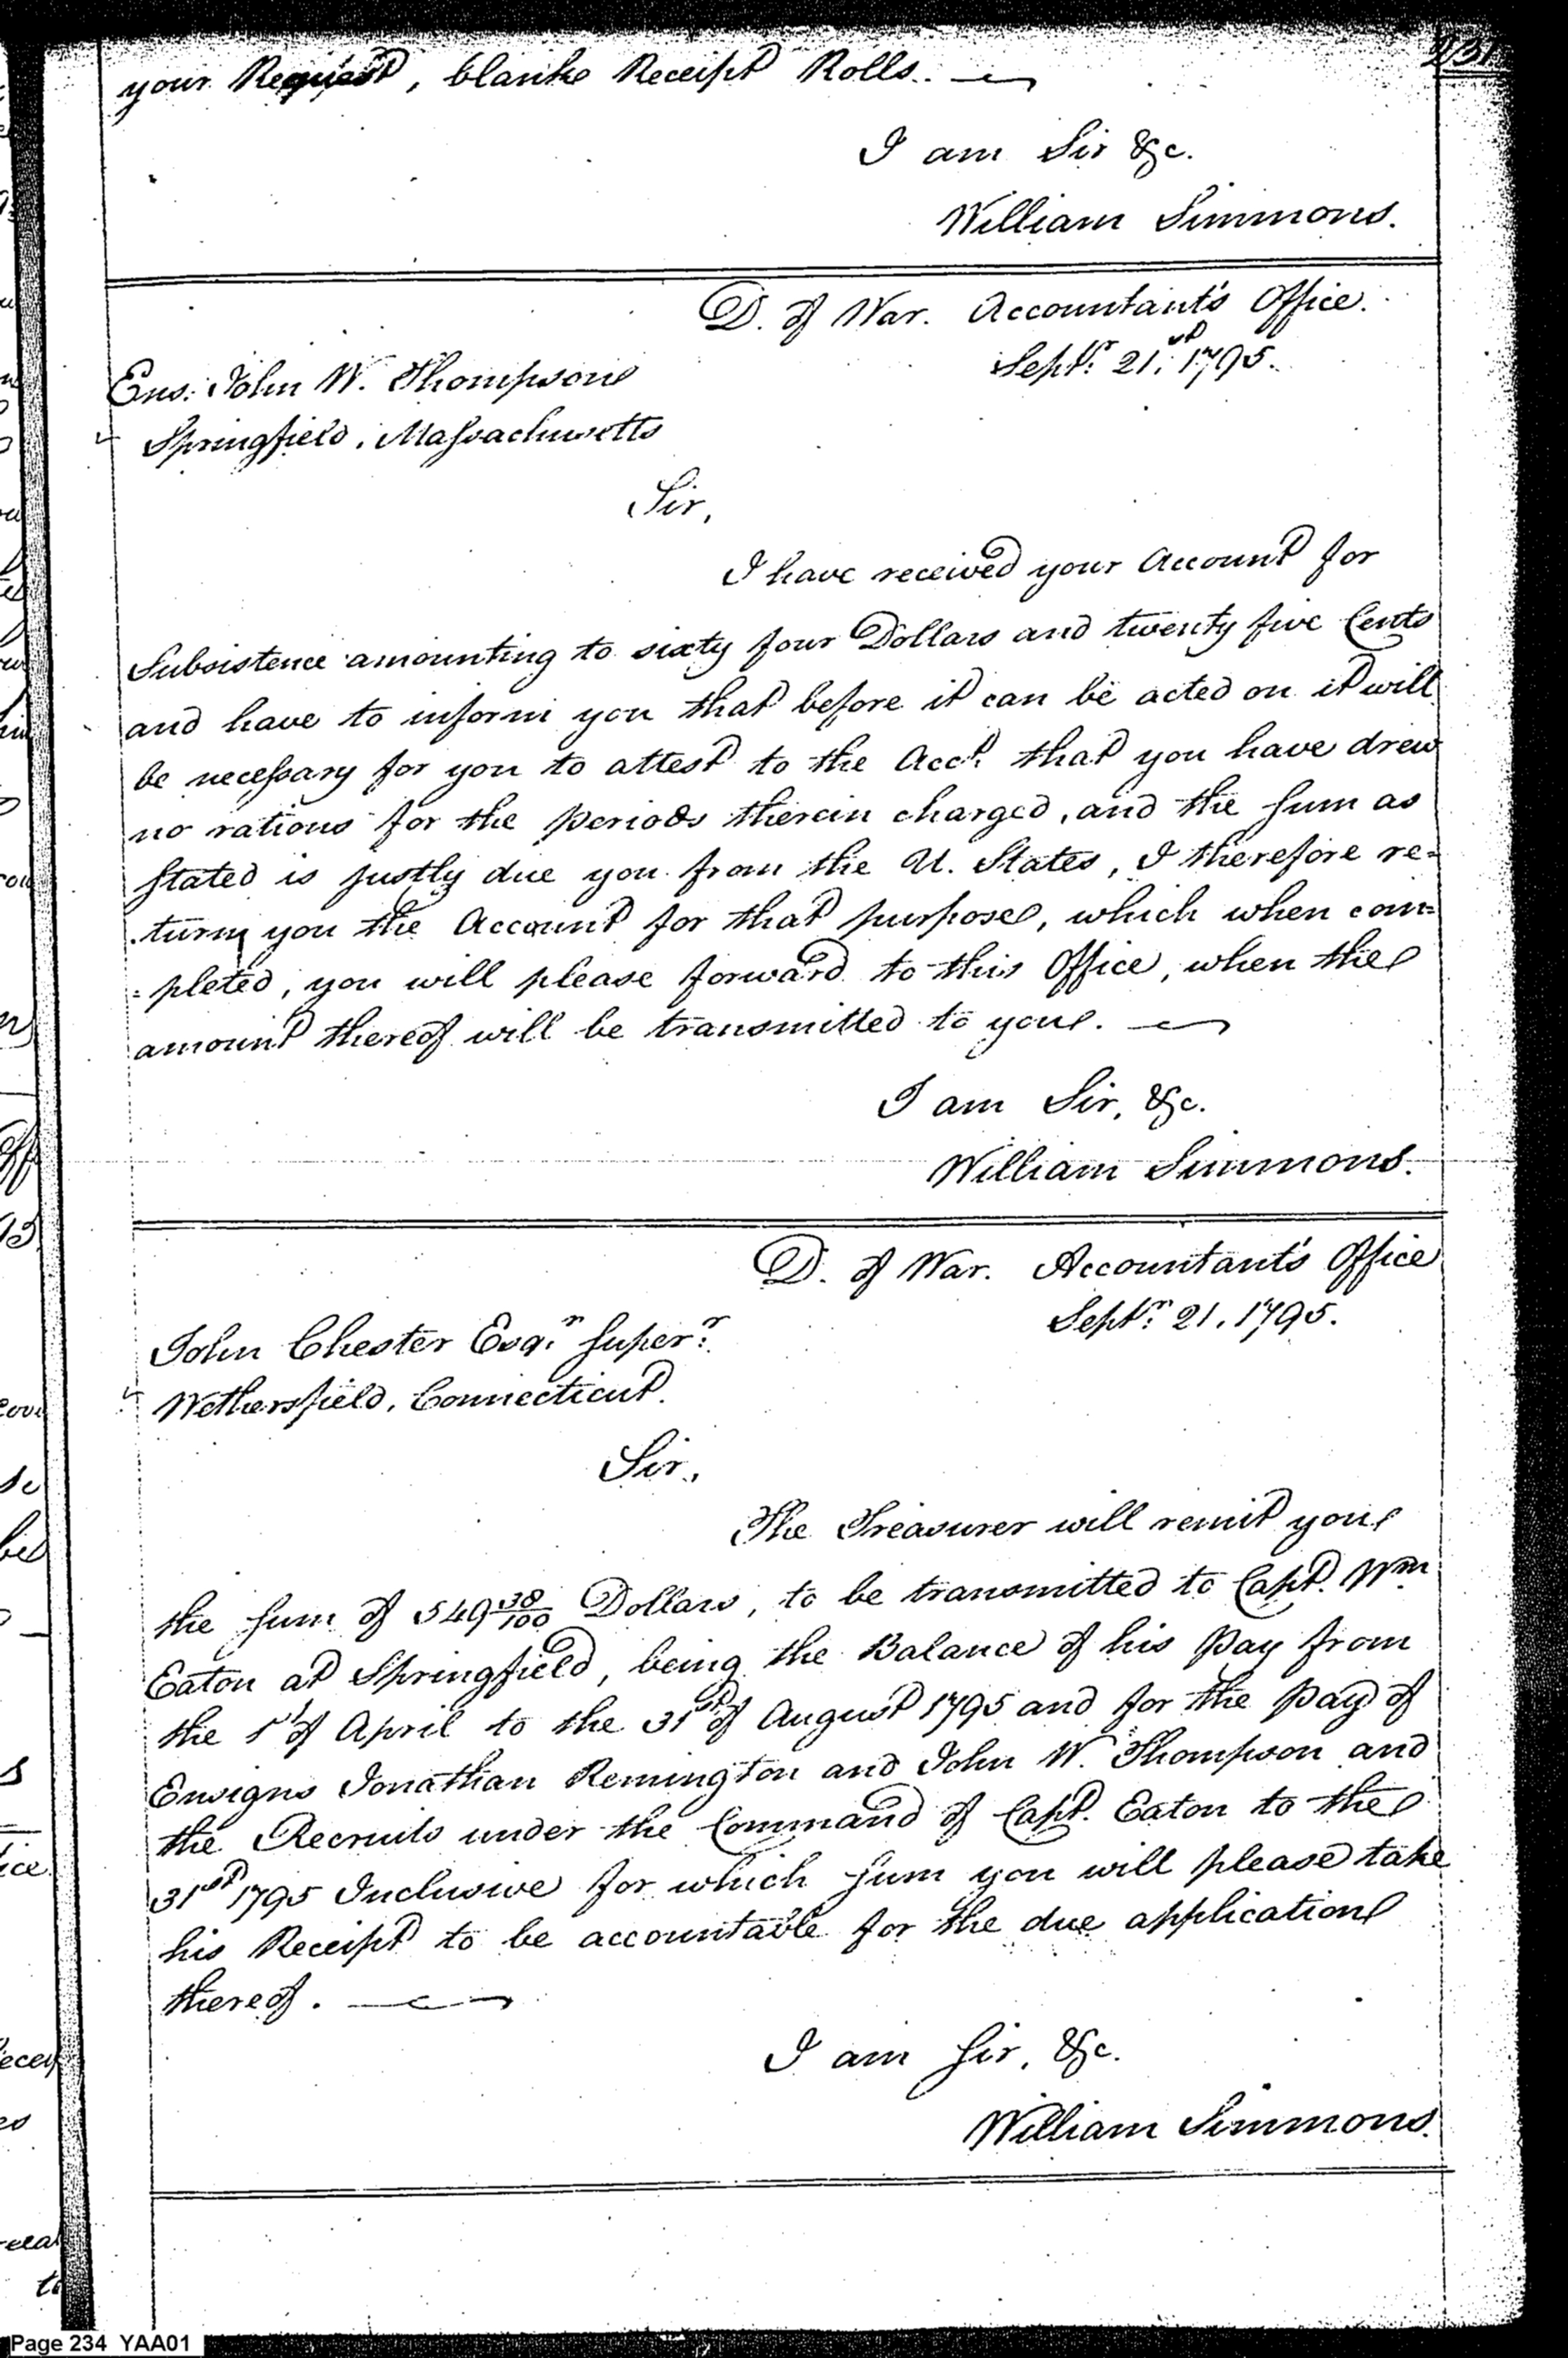 231
your Request, blank Receipt Rolls.
I am Sir &c.
William Simmons.
D. of War. Accountant's Office.
Septr. 21st. 1795.
Ens. John W. Thompson
Springfield, Massachusetts
Sir,
I have received your Account for
Subsistence amounting to sixty four Dollars and twenty five Cents
and have to inform you that before it can be acted on it will
be necessary for you to attest to the Acct. that you have drew
no rations for the periods therein charged, and the Sum as
Stated is justly due you from the U. States, I therefore re=
turn you the Account for that purpose, which when com=
=pleted, you will please forward to this Office, when the
amount thereof will be transmitted to you.
I am Sir, &c.
William Simmons.
D. of War. Accountant's Office
Septr. 21. 1795.
John Chester Esqr. Superr.
Wethersfield, Connecticut.
Sir,
The Treasurer will remit you
the Sum of 549 38/100 Dollars, to be transmitted to Capt. Wm
Eaton at Springfield, being the Balance of his Pay from
the 1st of April to the 31st of August 1795 and for the Pay of
Ensigns Jonathan Remington and John W. Thompson and
the Recruits under the Command of Capt. Eaton to the
31st 1795 Inclusive for which Sum you will please take
his Receipt to be accountable for the due application
thereof.
I am Sir, &c.
William Simmons.
Page 234 YAA01